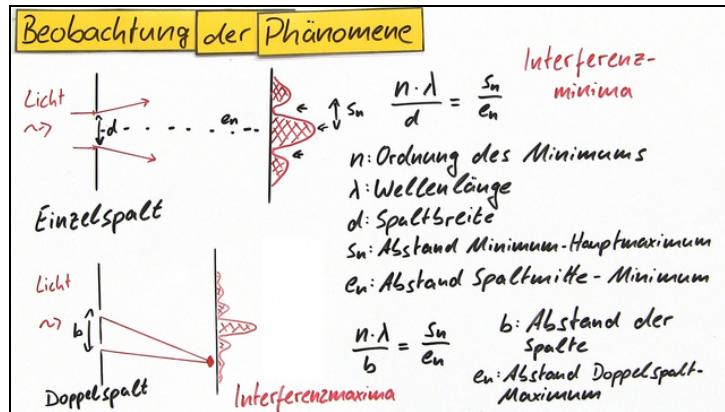 Beobachtung der Phänomene
Licht
d
en
sn
Einzelspalt
n · λ / d = sn / en
Interferenz-
minima
n: Ordnung des Minimums
λ: Wellenlänge
d: Spaltbreite
sn: Abstand Minimum-Hauptmaximum
en: Abstand Spaltmitte - Minimum
Licht
b
Doppelspalt
Interferenzmaxima
n · λ / b = sn / en
b: Abstand der
Spalte
en: Abstand Doppelspalt-
Maximum